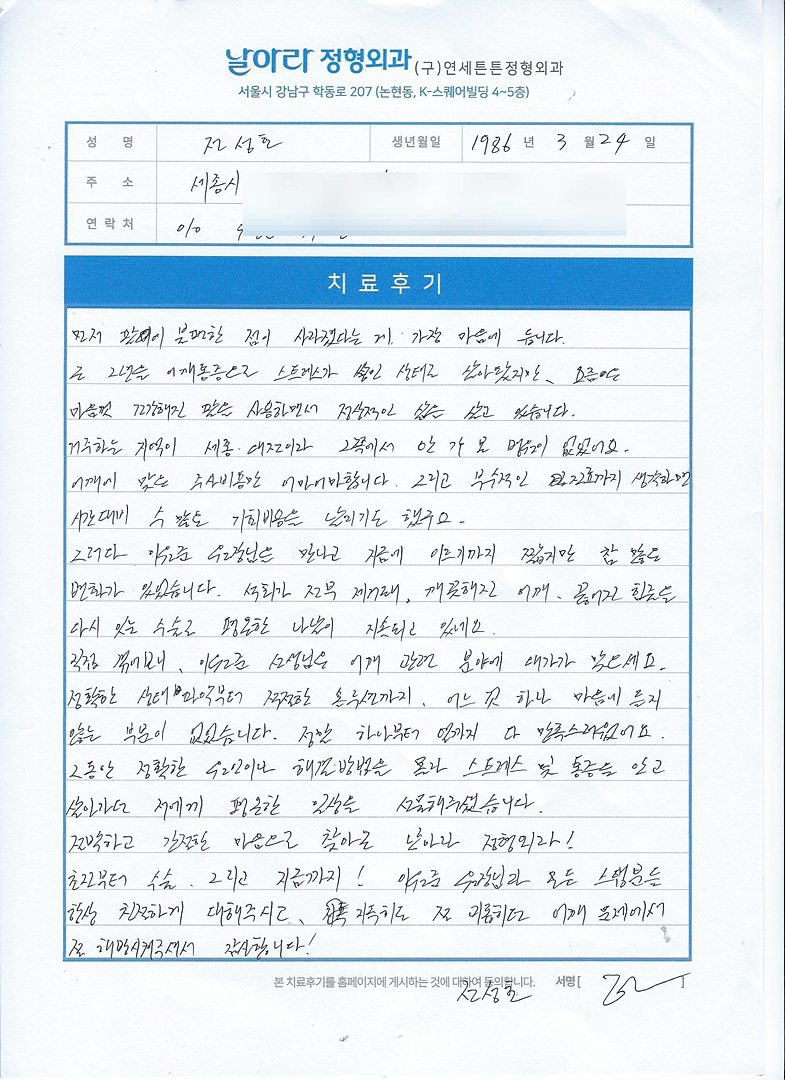 날아라 정형외과 (구)연세튼튼정형외과
서울시 강남구 학동로 207 (논현동, K-스퀘어빌딩 4~5층)
성 명 전성호 생년월일 1986 년 3 월 24 일
주 소 세종시
연락처 010
치료후기
먼저 팔에 불편한 점이 사라졌다는 게. 가장 마음에 듭니다.
근 2년을 어깨통증으로 스트레스가 쌓인 상태로 살아왔지만, 요즘에는
마음껏 건강해진 팔을 사용하면서 정상적인 삶을 살고 있습니다.
거주하는 지역이 세종·대전이라 그쪽에서 안 가 본 병원이 없었어요.
어깨에 맞은 주사비용만 어마어마합니다. 그리고 부수적인 진료까지 생각하면
시간대비 수 많은 기회비용을 날리기도 했구요.
그러다 원장님을 만나고 지금에 이르기까지 짧지만 참 많은
변화가 있었습니다. 석회가 전부 제거돼, 깨끗해진 어깨. 끊어진 힘줄을
다시 잇는 수술로 평온한 나날이 지속되고 있네요.
직접 겪어보니, 선생님은 어깨 관련 분야에 대가가 맞으세요.
정확한 상태 파악부터 적절한 까지. 어느 것 하나 마음에 들지
않는 부분이 없었습니다. 정말 하나부터 열까지 다 만족스러웠어요.
그동안 정확한 원인이나 해결방법을 몰라 스트레스 및 통증을 안고
살아가던 저에게 평온한 일상을 선물해주셨습니다.
절박하고 간절한 마음으로 찾아온 날아라 정형외과!
초진부터 수술. 그리고 지금까지! 원장님과 모든 스텝분들
항상 친절하게 대해주시고, 지독히도 절 괴롭히던 어깨 문제에서
절 해방시켜주셔서 감사합니다!
본 치료후기를 홈페이지에 게시하는 것에 대하여 동의합니다. 서명[ ]
전성호